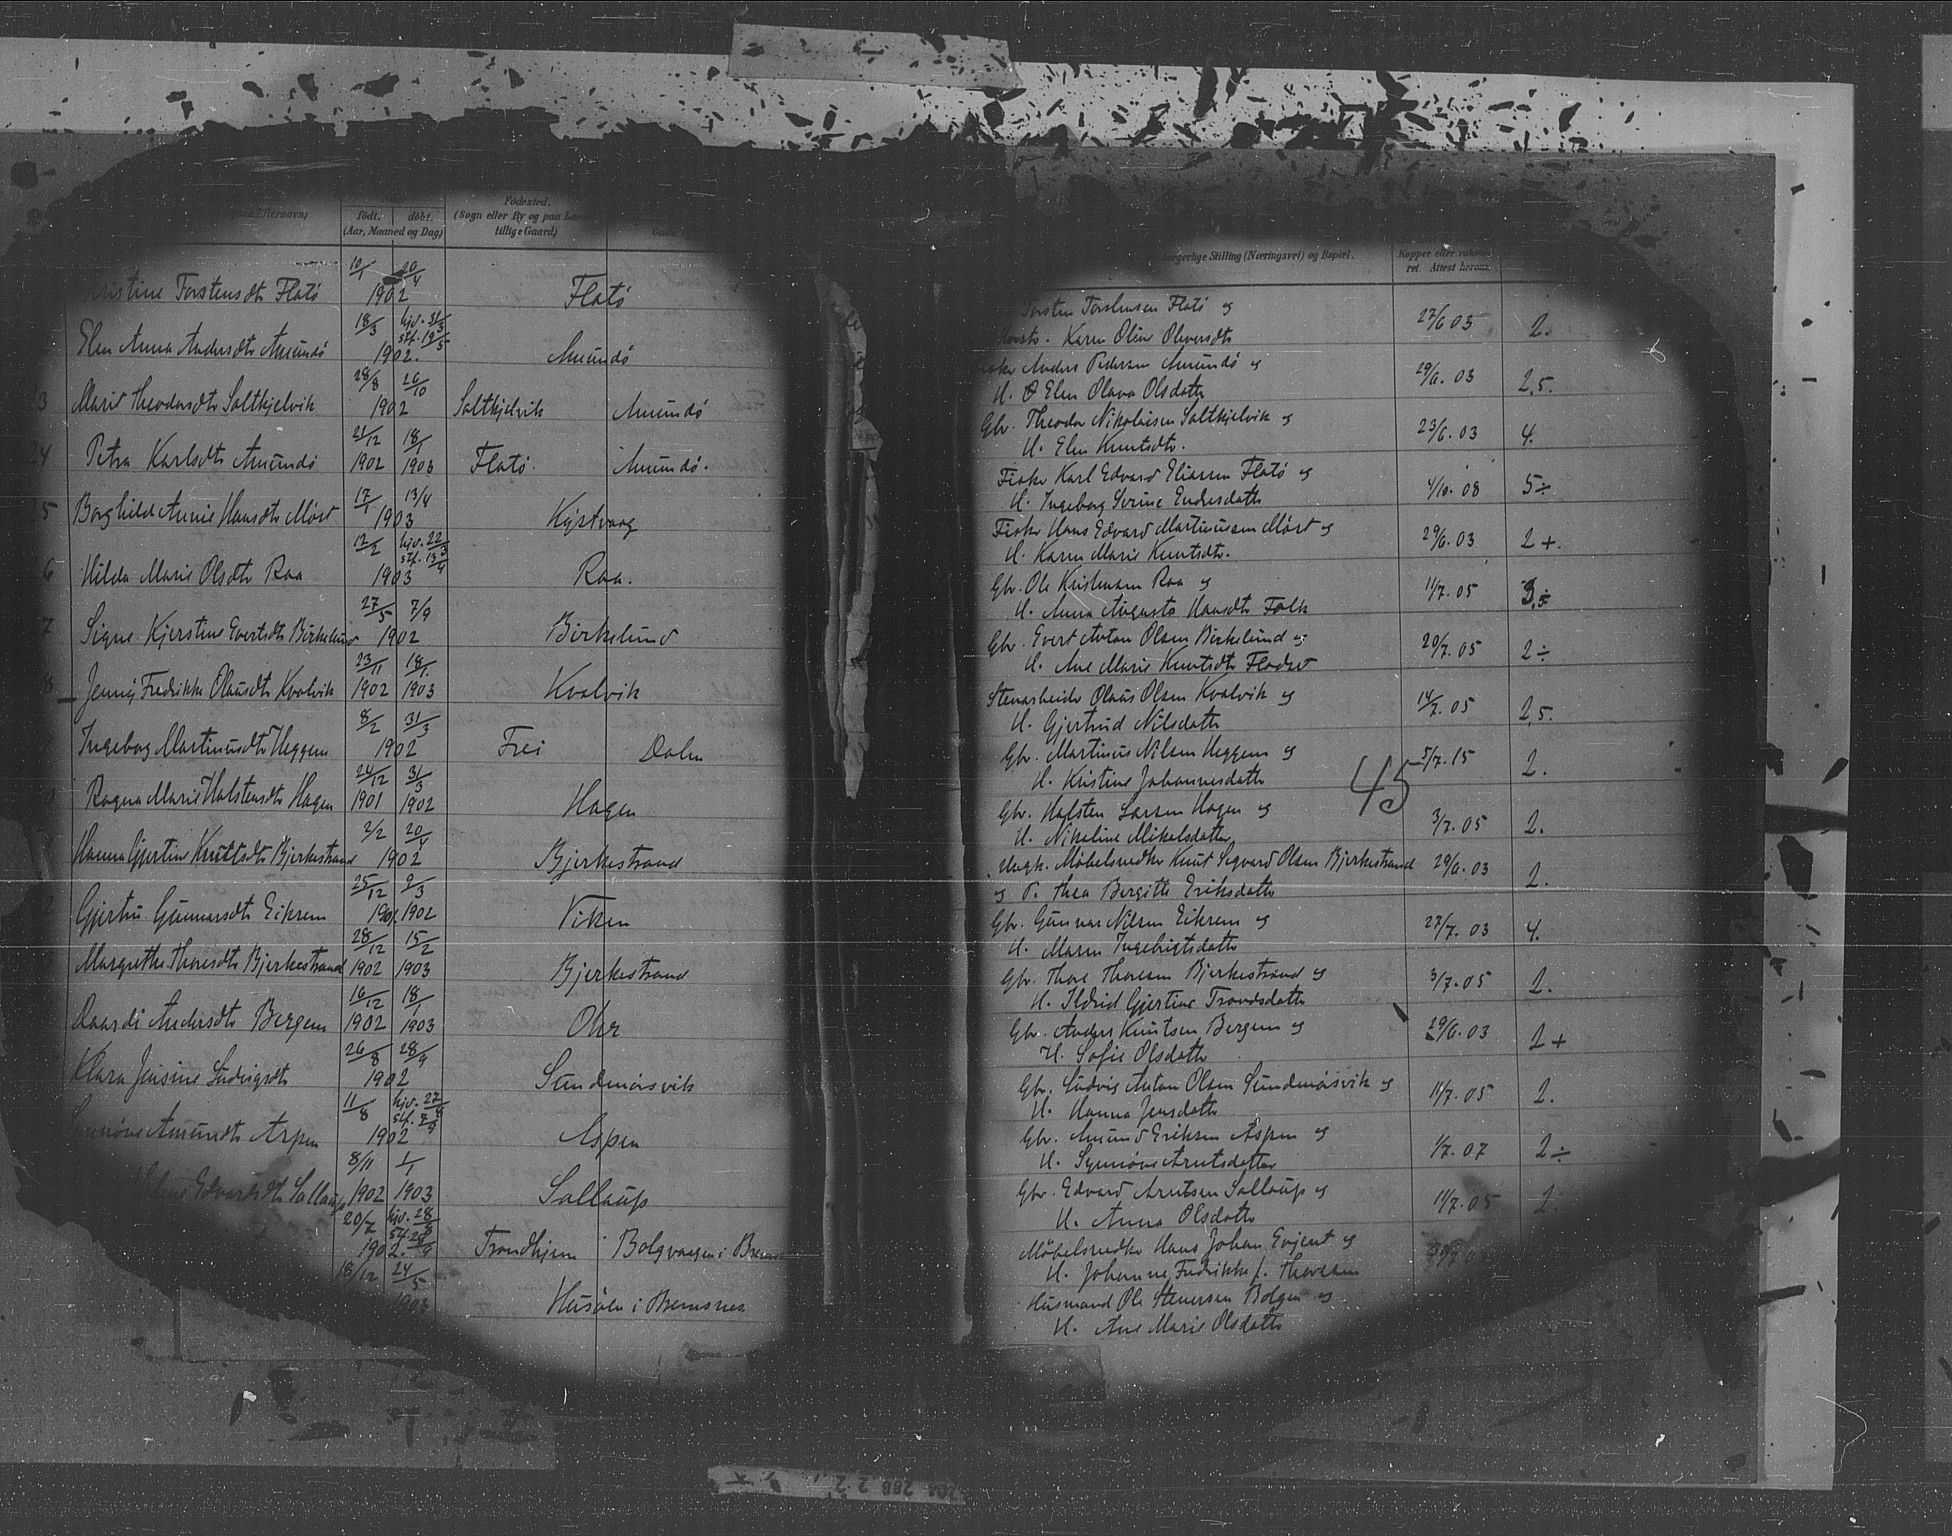 Efternavn)
født.
døbt.
(Aar, Maaned og Dag)
Fødested.
(Sogn eller By og paa
tillige Gaard)
Torstensdtr Flatö
10/1
20/4
1902
Flatö
Elen Anna Andersdtr Amundö
18/3
hjd. 31/3
stf. 19/5
1902.
Amundö
3
Marit Theodorsdtr Saltkjelvik
28/8
26/10
1902
Saltkjelvik
Amundö
24
Petra Karlsdtr Amundö
21/12
18/1
1902
1903
Flatö.
Amundö.
5
Borghild Annie Hansdtr Møst
17/1
13/4
1903
Kyrtvaag
6
Hilda Marie Olsdtr Raa
12/2
hjd. 22/3
stf. 13/4
1903
Raa.
7
Signe Kjerstine Evertsdtr Birkelund
27/5
7/9
1902
Birkelund
8
Jenny Fredrikke Olausdtr Kvalvik
23/11
18/1.
1902
1903
Kvalvik
Ingeborg Martinusdtr Heggem
8/2
31/3
1902
Frei
Dalen
Ragna Marie Halstensdtr Hagen
24/12
31/3
1901
1902
Hagen
Hanna Gjertine Knutsdtr Bjerkestrand
2/2
20/4
1902
Bjerkestrand
Gjertru Gunnarsdtr Eikrem
25/12
9/3
1901
1902
Viken
Margrethe Thoresdtr Bjerkestrand
28/12
15/2
1902
1903
Bjerkestrand
Andersdtr Bergem
16/12
18/1
1902
1903
Klara Jensine Ludvigsdtr
26/8
28/9
1902
Sundmörsvik
Amundsdtr Aspen
11/8
hjd. 27/8
stf. 7/9
1902
Aspen
Edvardsdtr Sallaup
8/11
1/1
1902
1903
Sallaup
20/7
hjd. 28/8
stf. 28/9
1902.
Trondhjem
Bolgvaagen i Brems
18/12
24/5
1903
Husöen i Bremsnes
borgerlige Stilling (Næringsvei) og Bopæl.
Kopper eller
ret Attest herom.
Torsten Torstensen Flatö og
Karen Oline Oliversdtr
27/6 03
2.
Anders Pedersen Amundö og
H. Elen Olava Olsdatter
29/6. 03
2,5.
Gbr. Theodor Nikolaisen Saltkjelvik og
H. Elen Knutsdtr.
23/6. 03
4.
Fisker Karl Edvard Eliassen Flatö og
H. Ingeborg Serine Endresdatter
4/10. 08
5÷
Fisker Hans Edvard Martinussen Møst og
H. Karen Marie Knutsdtr.
29/6. 03
2+.
Gbr. Ole Kristensen Raa og
H. Anna Augusta Hansdtr Falk
11/7. 05
3,÷
Gbr. Evert Anton Olsen Birkelund og
H. Ane Marie Knutsdtr Flodset
20/7. 05
2÷
Stenarbeider Olaus Olsen Kvalvik og
H. Gjertrud Nilsdatter
14/7. 05
2,5.
Gbr. Martinus Nilsen Heggem og
H. Kristine Johannesdatter
5/7. 15
2.
45
Gbr. Halsten Larsen Hagen og
H. Nikoline Mikalsdatter
3/7. 05
2.
Ungk. Møbelsnedker Knut Segvard Olsen Bjerkestrand
og P. Thea Bergitte Eriksdatter
29/6. 03
2.
Gbr. Gunnar Nilsen Eikrem og
H. Maren Ingebrigtsdatter
27/7. 03
4.
Gbr. Thore Thoresen Bjerkestrand og
H. Ildrid Gjertine Trondsdatter
3/7. 05
2.
Gbr. Anders Knutsen Bergem og
H. Sofie Olsdatter
29/6. 03
2+
Gbr. Ludvig Anton Olsen Sundmörsvik og
H. Hanna Jensdatter
11/7. 05
2.
Gbr. Amund Eriksen Aspen og
H. Synnöve Arntsdatter
1/7. 07
2÷
Gbr. Edvard Arntsen Sallaup og
H. Anna Olsdatter
11/7. 05
2.
Møbelsnedker Hans Johan Evjent og
H. Johanne Fredrikke f. Thoresen
Husmand Ole Stenersen Bolgen og
H. Ane Marie Olsdatter